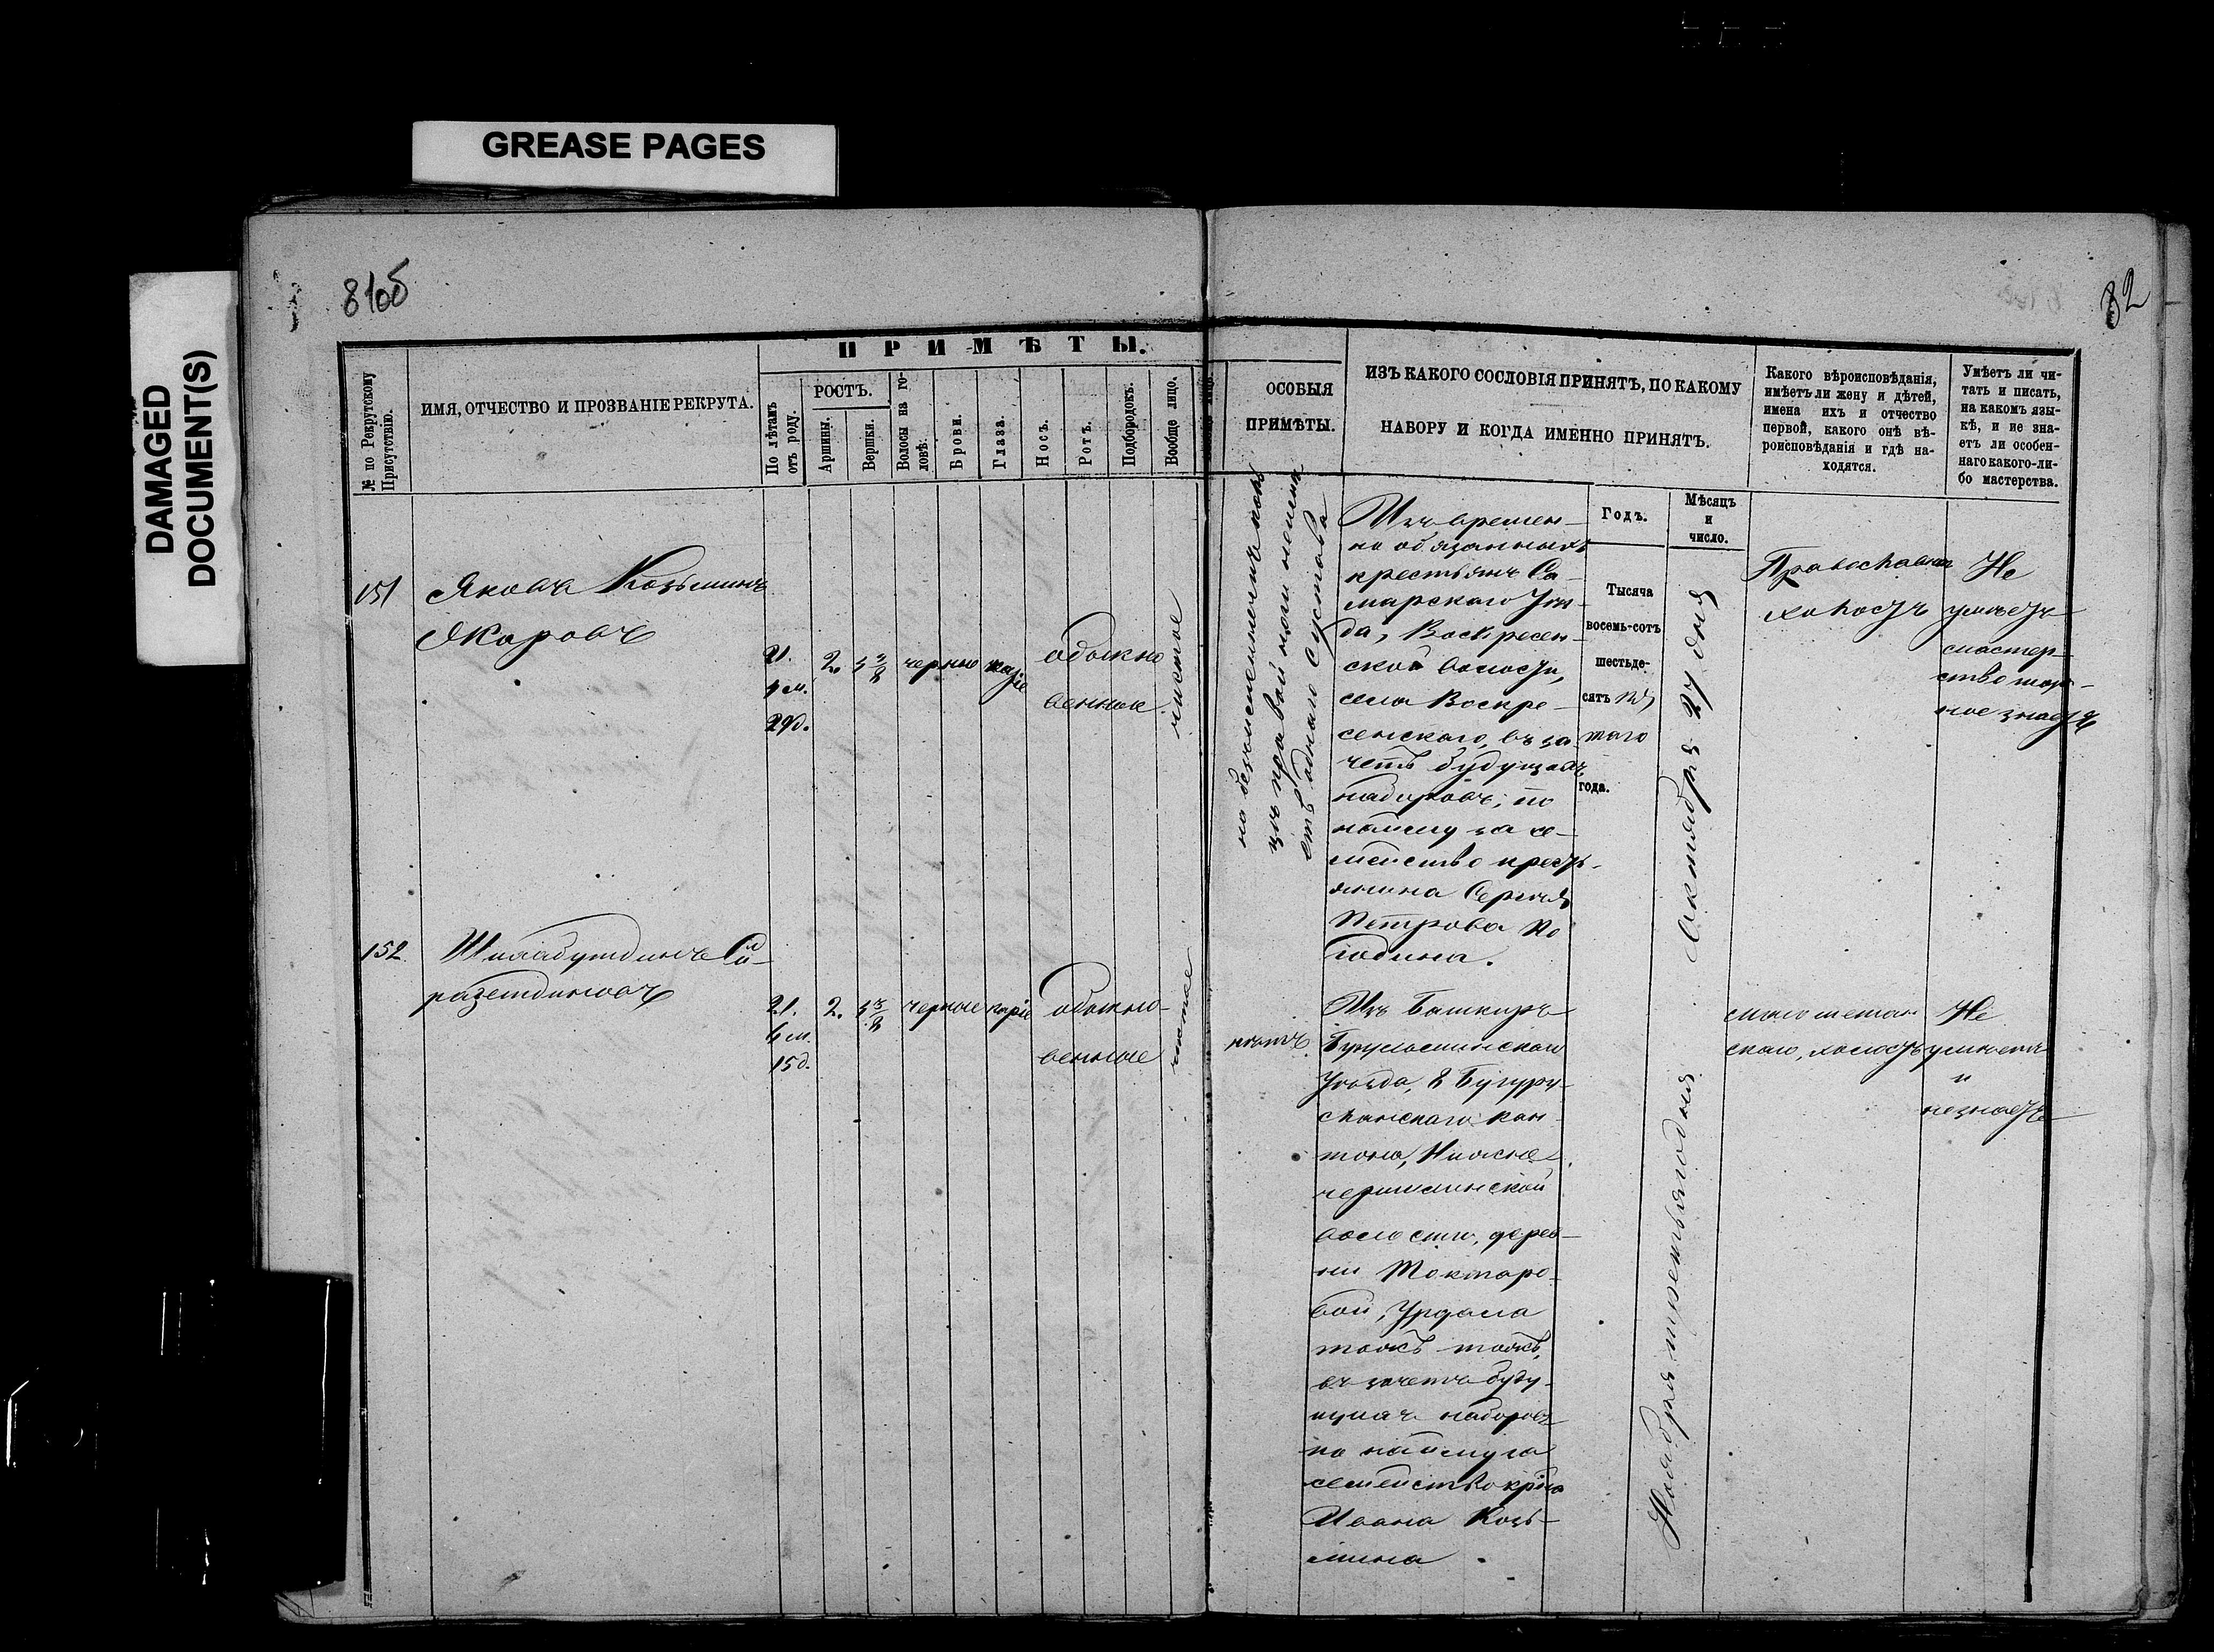 GREASE PAGES
DAMAGED
DOCUMENT(S)
81об
82
ПРИМѢТЫ.
№ по Рекрутскому
Присутствію.
ИМЯ, ОТЧЕСТВО И ПРОЗВАНІЕ РЕКРУТА.
По лѣтамъ
отъ роду.
РОСТЪ.
Аршины.
Вершки.
Волосы на го-
ловѣ.
Брови.
Глаза.
Носъ.
Ротъ.
Подбородокъ.
Вообще лицо.
ОСОБЫЯ
ПРИМѢТЫ.
ИЗЪ КАКОГО СОСЛОВІЯ ПРИНЯТЪ, ПО КАКОМУ
НАБОРУ И КОГДА ИМЕННО ПРИНЯТЪ.
Какого вѣроисповѣданія,
имѣетъ ли жену и дѣтей,
имена ихъ и отчество
первой, какого онѣ вѣ-
роисповѣданія и гдѣ на-
ходятся.
Умѣетъ ли чи-
тать и писать,
на какомъ язы-
кѣ, и не зна-
етъ ли особен-
наго какого-ли-
бо мастерства.
Годъ.
Мѣсяцъ
и
число.
151
Яковъ Козьминъ
21.
2.
5 3/8
черные
каріе
обыкно
венные
чистое
на безъимянномъ
правой ноги
одного сустава
Изъ времен-
но обязанныхъ
крестьянъ Са-
марскаго Уѣз-
да, Воскресен-
ской волости,
села Воскре-
сенскаго, въ за
четъ будущихъ
наборовъ, по
найму за се-
мейство кресть-
янина Сергѣя
Петрова По
година.
Тысяча
восемь-сотъ
шестьде-
сятъ пя
таго
года.
Октября 27 дня
Православн
холостъ
Не
умѣетъ
мастер-
ство
ное знаетъ
152
Шигабутдинъ Си-
разетдиновъ
21.
6 м.
15 д.
2.
5 3/8
черные
каріе
обыкно-
венные
чистое
нѣтъ
Изъ Башкиръ
Бугульминскаго
Уѣзда, 8 Бугуру-
сланскаго кан-
тона, Нижне-
чершилинской
волости, дерев-
ни Токтаро-
вой, Урдала
токъ тожъ,
въ зачетъ буду-
щихъ наборовъ
по найму за
семейство кр-на
Ивана Козь-
мина
Ноября третьягодня
магометан
скаго, холостъ
Не
умѣетъ
и
не знаетъ